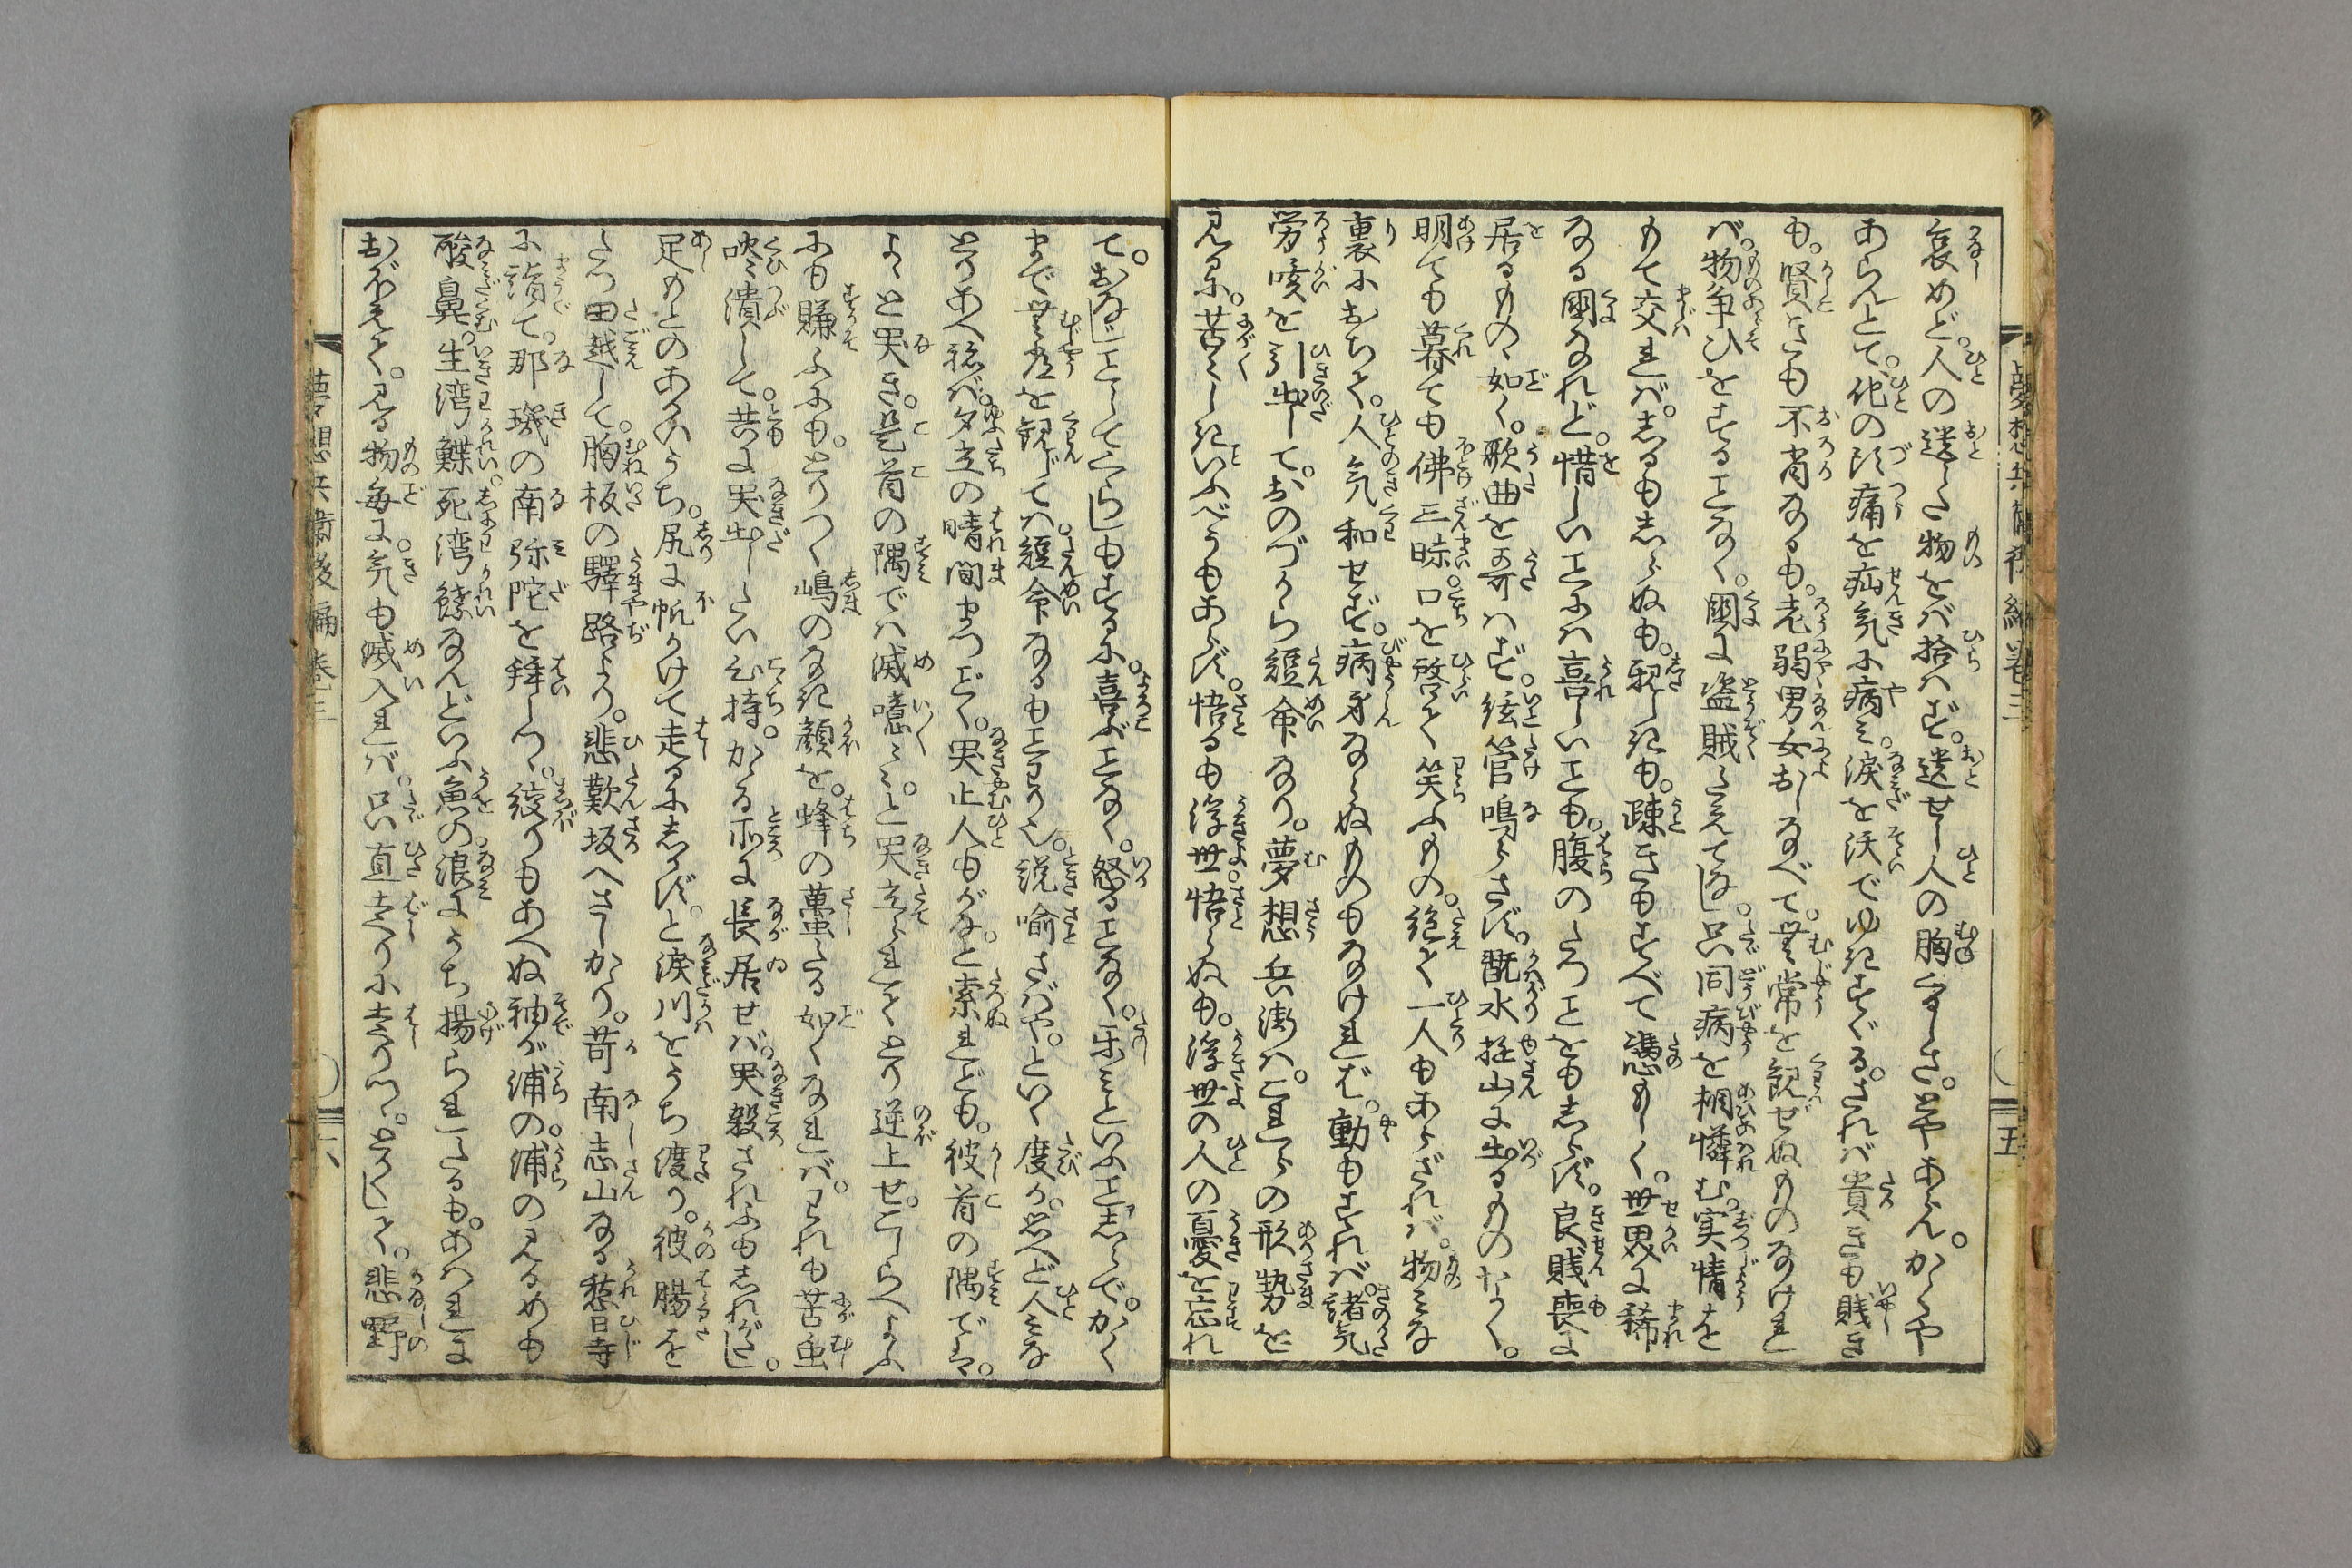 哀めど。人の遺した物をば拾はず。遺せし人の胸くるしさ。とやあらん。かくや
あらんとて。他の頭痛を疝気に病み。涙を沃でゆきすぐる。されば貴きも賎き
も。賢きも不肖なるも。老弱男女おしなべて。無常を観ぜぬものなけれ
ば。物争ひをすることなく。國に盗賊たえてなし。只同病を相憐む。実情を
もて交れば。しるもしらぬも。親しきも。疎きもすべて憑もしく。世界に稀
なる國なれど。惜しいことには喜しいことも。腹のたつことをもしらず。良賎喪に
居るものゝ如く。歌曲を哥はず。絃管鳴らさず。翫水遊山に出るものなく。
明ても暮ても佛三昧。口を啓て笑ふもの。絶て一人もあらざれば。物みな
裏におちて。人気和せず。病身ならぬものもなければ。動もすれば。諸気
労咳を引出して。おのづから短命なり。夢想兵衛は。これらの形勢を
見るに。苦々しきといふべうもあらず。悟るも浮世。悟らぬも。浮世の人の憂を忘れ
て。おなじことしてくらしもするに。喜ぶことなく。怒ることなく。楽みといふことしらで。かく
まで無常を観じては。短命なるもことわり也。説喩さばや。といく度か。思へど人みな
とりあへねば。夕立の晴間まつごとく。哭止人もがなと索れども。彼首の隅でも。
よゝと哭き。是首の隅では滅噫々々。と哭立られて。とり逆上せ。こしらへよふ
にも賺ふにも。とりつく嶋のなき顔を。蜂の螫たる如くなれば。われも苦虫
吹潰して。共に哭出したい心持。かゝる所に長居せば。哭殺されふもしれがたし。
足もとのあかいうち。尻に帆かけて走るにしかず。と涙川をうち渡り。彼腸を
たつ田越して。胸板の驛路より。悲歎坂へさしかゝり。苛南志山なる愁日寺
に詣て。那璣の南弥陀を拝しつゝ。絞りもあへぬ袖が浦の。浦の見るめも
酸鼻。生湾鰈死湾鰈なんどいふ魚の。浪にうち揚られたるも。あはれに
おぼえて。見る物毎に気も滅入れば。只直走りに走りつゝ。とかくして。悲野
夢想兵衛後編巻三
五
夢想兵衛後編 巻三
六